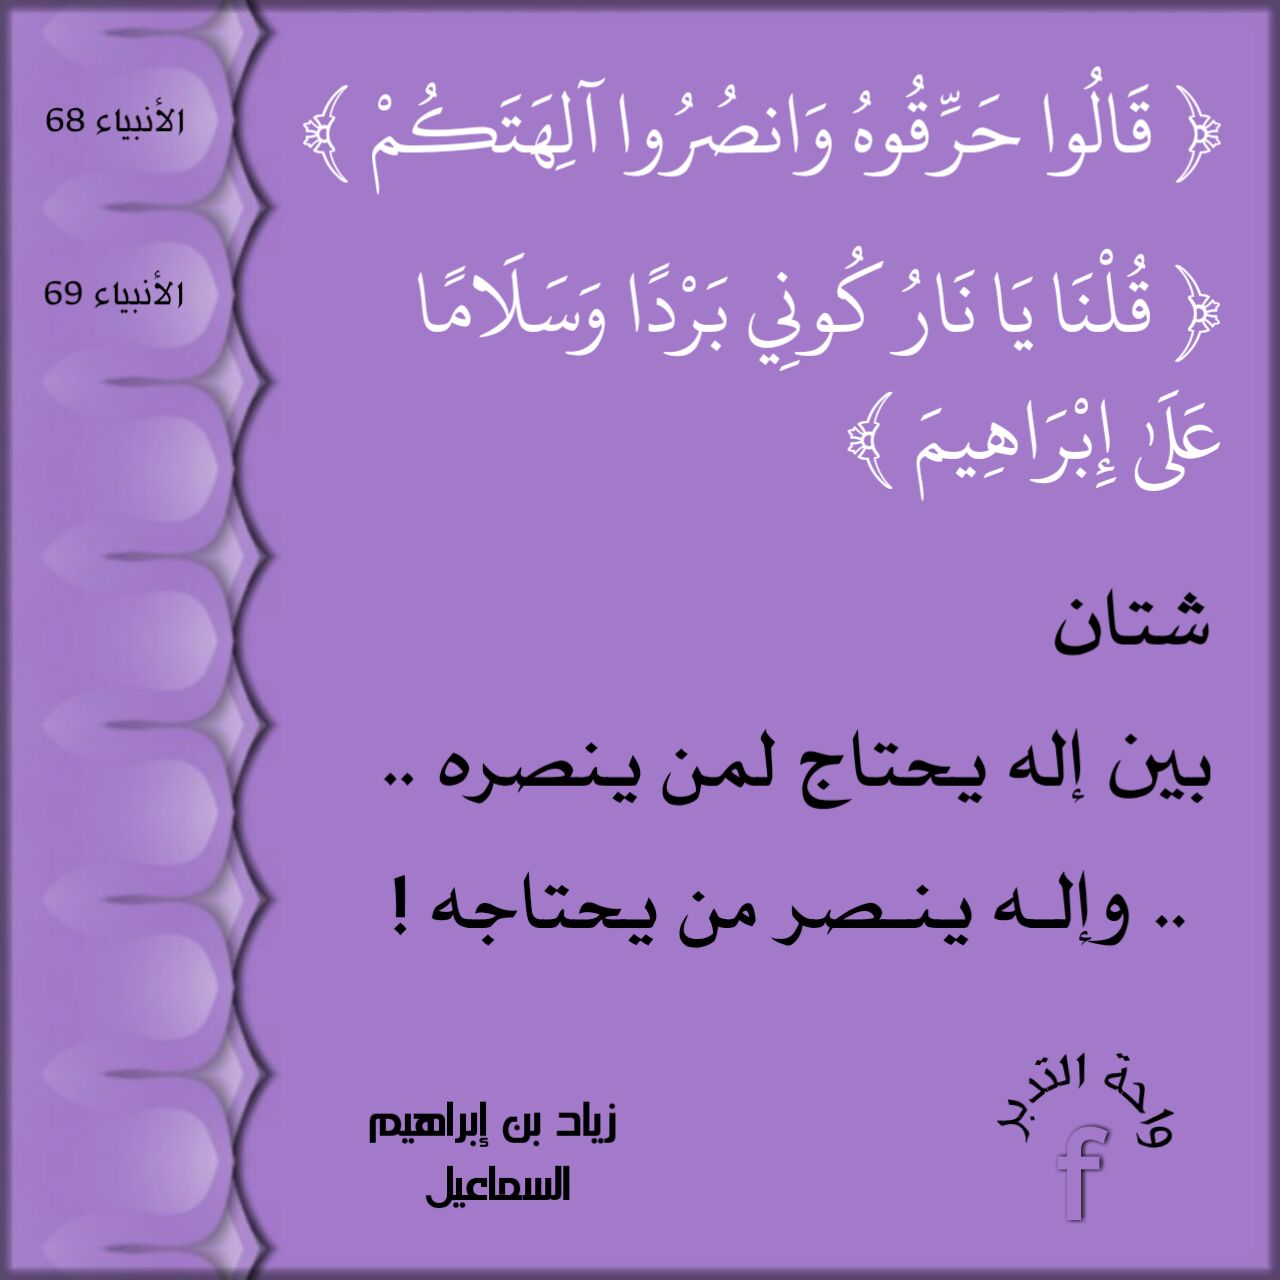 ﴿ قَالُوا حَرِّقُوهُ وَانصُرُوا آلِهَتَكُمْ ﴾
الأنبياء 68
﴿ قُلْنَا يَا نَارُ كُونِي بَرْدًا وَسَلَامًا
الأنبياء 69
عَلَىٰ إِبْرَاهِيمَ ﴾
شتان
بين إله يحتاج لمن ينصره ..
.. وإلــه ينــصر من يحتاجه !
واحة التدبر
f
زياد بن إبراهيم
السماعيل